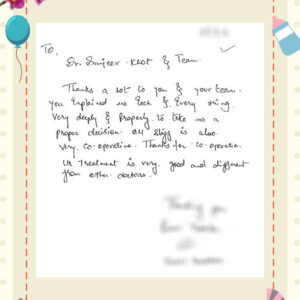 To,
Dr. Sanjeev Khot & Team.
Thanks a lot to you & your team.
you Explained us Each & Every thing.
Very deeply & Properly. to take us a
proper decision. all staff is also
very. co-operative. Thanks for co-operation
Ur Treatment is very good and different
from other doctors.
Thank you